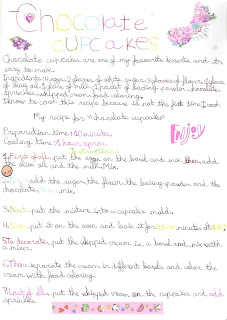 Chocolate
CUPCAKES
Chocolate cupcakes are one of my favorite desserts and it's
easy to make.
Ingredients: eggs, glasses of white sugar, 3 glasses of flour, glass
of olive oil, glass of milk, 1 packet of baking powder, chocolate,
sprinkles, whipped cream, food coloring.
I know to cook this recipe because is not the first time I cook
My recipe for "chocolate cupcakes"
Preparation time: minutes
Cooking time: 1 hour aprox.
Enjoy
Instructions
1. First of all, put the eggs on the bowl and mix then add
the olive oil and the milk. Mix.
add the sugar, the flour, the baking powder and the
chocolate, mix.
3. Next, put the mixture into a cupcake molds.
4. put it on the oven and bake it for minutes at
5. To decorate, put the whipped cream in a bowl and mix with
a mixer.
6. Then separate the cream in different bowls and color the
cream with food coloring.
7. Last of all, put the whipped cream on the cupcakes and add
sprinkles.